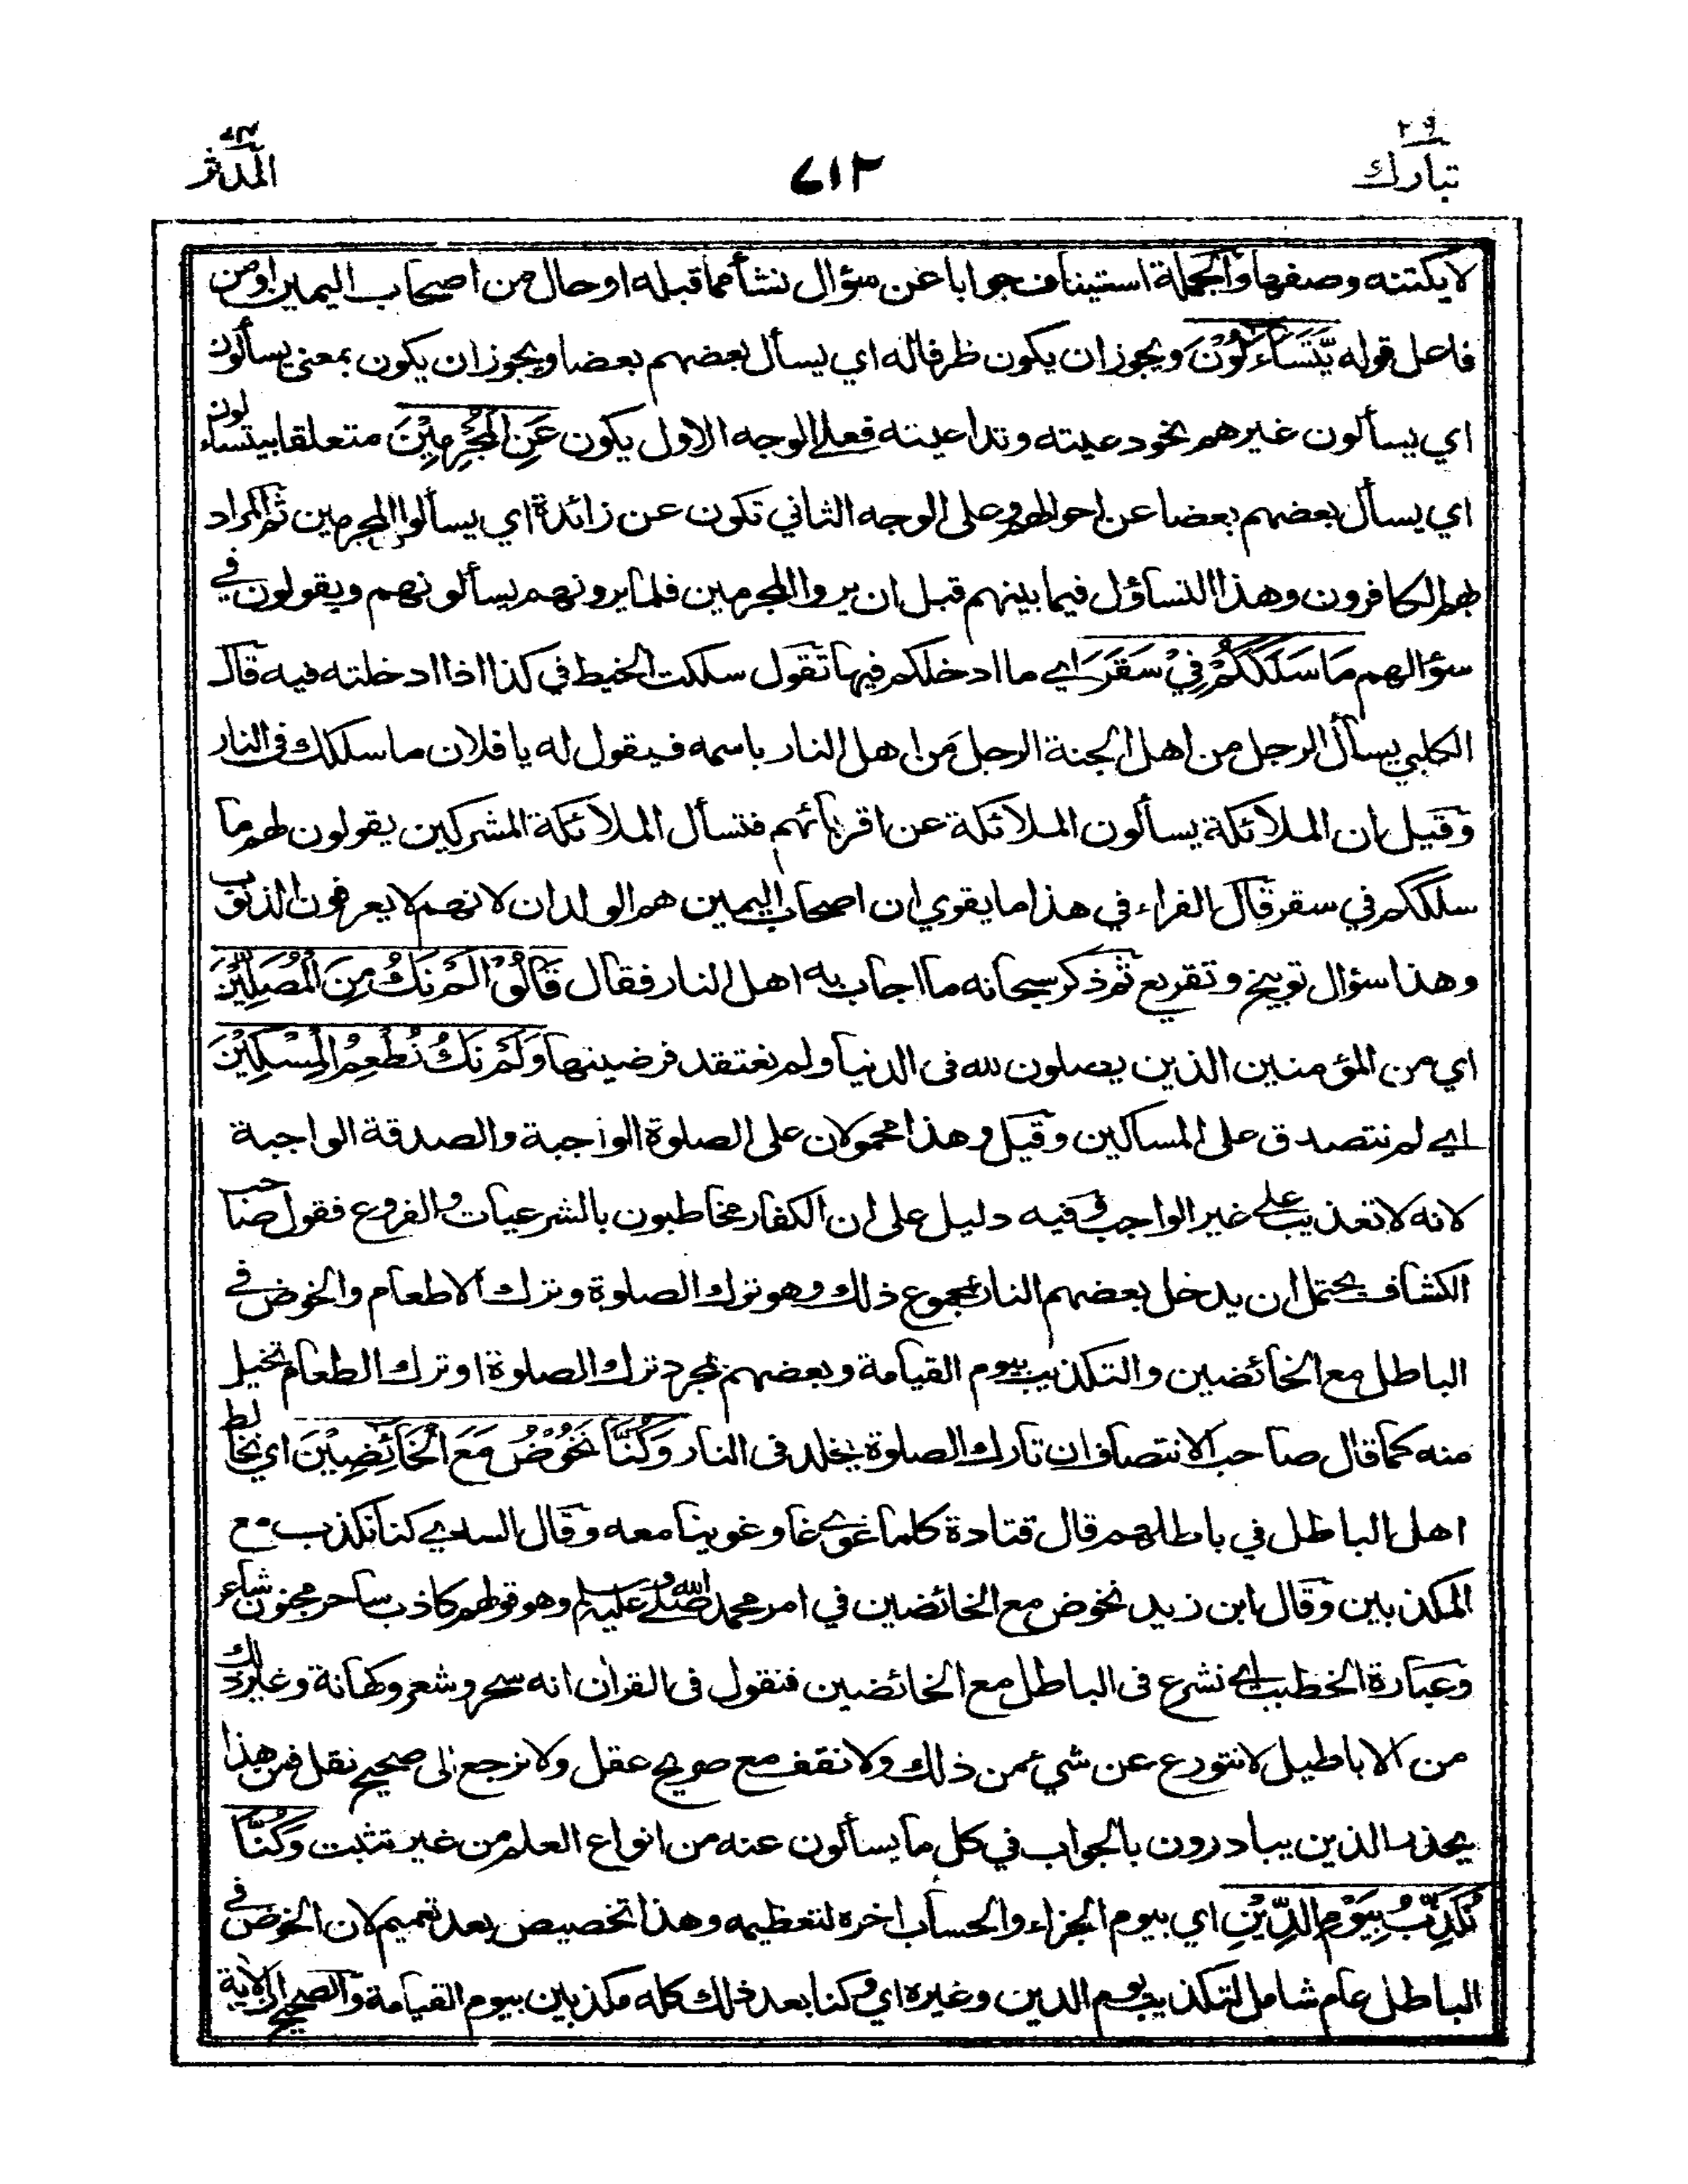 ٢٩
تبارك
٦١٢
٧٤
المدثر
لا يكتنه وصفها والجملة استيناف جوابا عن سؤال نشأ مما قبله او حال من اصحاب اليمين او من
فاعل قوله يَتَسَاءَلُوْنَ ويجوز ان يكون ظرفا له اي يسأل بعضهم بعضا ويجوز ان يكون بمعنى يسألون
اي يسألون غيرهم نحو دعيته وتداعيته فعلى الوجه الاول يكون عَنِ الْمُجْرِمِيْنَ متعلقا بيتساءلون
اي يسأل بعضهم بعضا عن احوالهم وعلى الوجه الثاني تكون عن زائدة اي يسألوا المجرمين ثم المراد
بهم الكافرون وهذا التساؤل فيما بينهم قبل ان يروا المجرمين فلما يرونهم يسألونهم ويقولون في
سؤالهم مَا سَلَكَكُمْ فِيْ سَقَرَ اي ما ادخلكم فيها تقول سلكت الخيط في كذا اذا ادخلته فيه قال
الكلبي يسأل الرجل من اهل الجنة الرجل من اهل النار باسمه فيقول له يا فلان ما سلكك في النار
وقيل ان الملائكة يسألون الملائكة عن اقربائهم فتسأل الملائكة المشركين يقولون لهم ما
سلككم في سقر قال الفراء في هذا ما يقوي ان اصحاب اليمين هم الولدان لانهم لا يعرفون الذنوب
وهذا سؤال توبيخ وتقريع ثم ذكر سبحانه ما اجاب به اهل النار فقال قَالُوْا لَمْ نَكُ مِنَ الْمُصَلِّيْنَ
اي من المؤمنين الذين يصلون لله في الدنيا ولم نعتقد فرضيتها وَلَمْ نَكُ نُطْعِمُ الْمِسْكِيْنَ
اي لم نتصدق على المساكين وقيل وهذا محمولان على الصلوة الواجبة والصدقة الواجبة
لانه لا تعذيب على غير الواجب وفيه دليل على ان الكفار مخاطبون بالشرعيات والفروع فقول صاحب
الكشاف يحتمل ان يدخل بعضهم النار بمجموع ذلك وهو ترك الصلوة وترك الاطعام والخوض في
الباطل مع الخائضين والتكذيب بيوم القيامة وبعضهم بمجرد ترك الصلوة او ترك الطعام تخيل
منه كما قال صاحب الانتصاف ان تارك الصلوة يخلد في النار وَكُنَّا نَخُوْضُ مَعَ الْخَائِضِيْنَ اي نخالط
اهل الباطل في باطلهم قال قتادة كلما غوى غاو غوينا معه وقال السدي كنا نكذب مع
المكذبين وقال ابن زيد نخوض مع الخائضين في امر محمد صلى الله عليه وسلم وهو قولهم كاذب ساحر مجنون شاعر
وعبارة الخطيب اي نشرع في الباطل مع الخائضين فنقول في القران انه سحر وشعر وكهانة وغير ذلك
من الاباطيل لا نتورع عن شيء من ذلك ولا نقف مع صريح عقل ولا نرجع الى صحيح نقل فمن هذا
يحذر الذين يبادرون بالجواب في كل ما يسألون عنه من انواع العلم من غير تثبت وَكُنَّا
نُكَذِّبُ بِيَوْمِ الدِّيْنِ اي بيوم الجزاء والحساب اخره لتعظيمه وهذا تخصيص بعد تعميم لان الخوض في
الباطل عام شامل لتكذيب يوم الدين وغيره اي وكنا بعد ذلك كله مكذبين بيوم القيامة والصحيح ان الاية